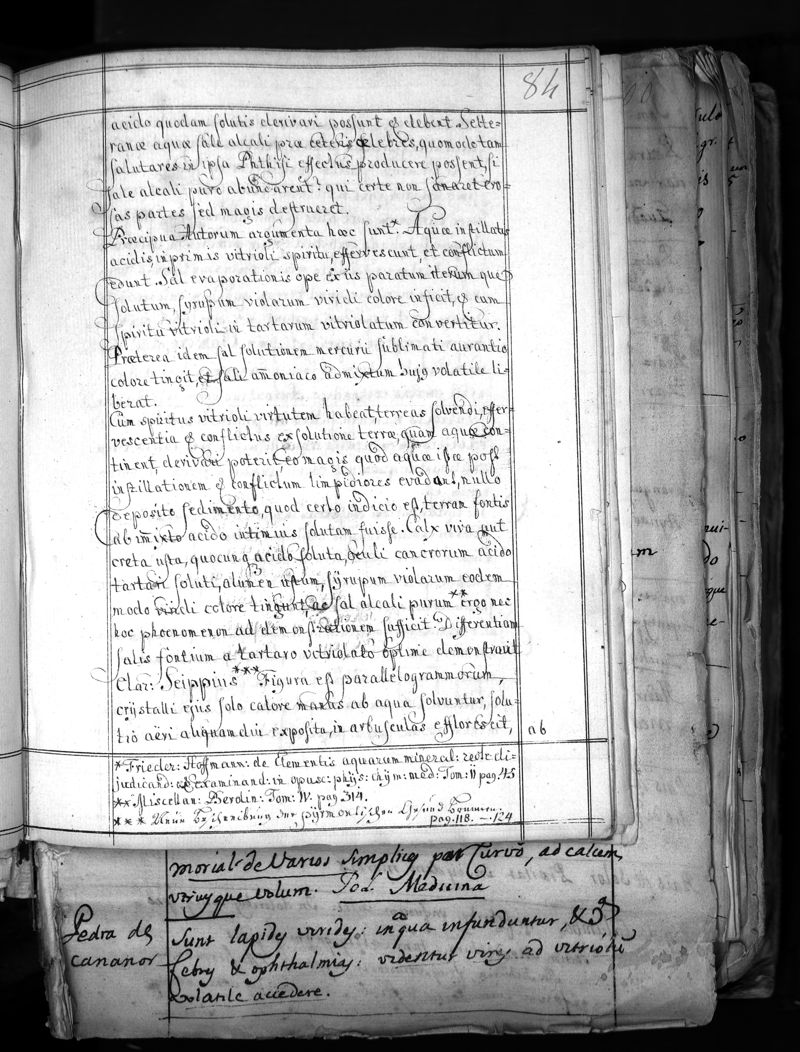 84
acido quodam solutis derivari possunt & debent. Selte-
ranæ aquæ sale alcali præ ceteris celebres, quomodo tam
salutares in ipsa Phthisi effectus producere possent, si
sale alcali puro abundarent? qui certe non sanaret ero-
sas partes sed magis destrueret.
Præcipua Autorum argumenta hæc sunt.* Aquæ instillatis
acidis, inprimis vitrioli spiritu, effervescunt, et conflictum
edunt. Sal evaporationis ope ex iis paratum iterum que
solutum, syrupum violarum viridi colore inficit, & cum
spiritu vitrioli in tartarum vitriolatum convertitur.
Præterea idem sal solutionem mercurii sublimati aurantio
colore tingit, et sali amoniaco admixtum hujg volatile li-
berat.
Cum spiritus vitrioli virtutem habeat, terreas solvendi, effer-
vescentia & conflictus ex solutione terræ, quam aquæ con-
tinent, derivari poterit eo magis quod aquæ istæ post
instillationem & conflictum limpidiores evadant, nullo
deposito sedimento, quod certo indicio est, terram fontis
ab imixto acido intimius solutam fuisse. Calx viva aut
creta usta, quocunq acido soluta, oculi cancrorum acido
tartari soluti, alumen ustum, syrupum violarum eodem
modo viridi colore tingunt, ac sal alcali purum** ergo nec
hoc phoenomenon ad demonstrationem sufficit. Differentiam
salis fontium a tartaro vitriolato optime demonstravit
Clar: Seippius*** Figura est parallelogrammorum,
crystalli ejus solo calore manus ab aqua solvuntur, solu-
tio aëri aliquamdiu exposita, in arbusculas efflorescit,
ab
* Frieder: Hoffmann: de Elementis aquarum mineral: recte di-
judicand: & Examinand: in opusc: phys: chym: med: Tom: II pag. 45
** Miscellan: Berolin: Tom: IV. pag 314.
*** Neue Beschreibung der Pyrmontischen Gesund Brunnen.
pag. 118. — 124
morial. de Varios simplices par Curvo, ad calcem
utriusque volum. Poa. Medicina
Pedra de
cananor
Sunt lapides virides: in aqua infunduntur, &
febres & ophthalmias: videntur vires ad vitriolū
volatile accedere.